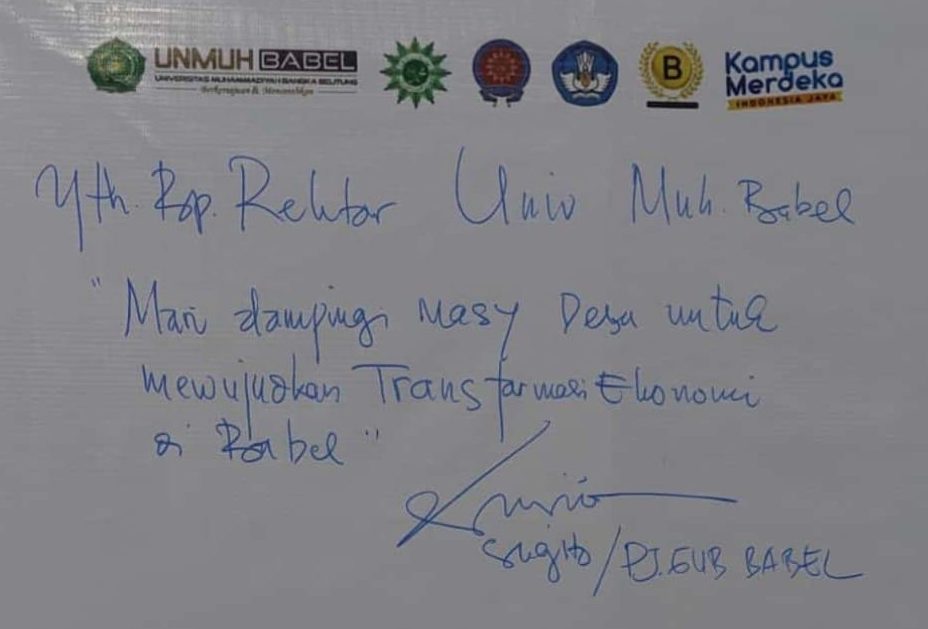 UNMUH BABEL
UNIVERSITAS MUHAMMADIYAH BANGKA BELITUNG
Berkemajuan & Mencerahkan
B
Kampus
Merdeka
INDONESIA JAYA
Yth. Bp. Rektor Univ Muh. Babel
"Mari dampingi Masy Desa untuk
mewujudkan Transformasi Ekonomi
di Babel"
Sugito/PJ.GUB BABEL